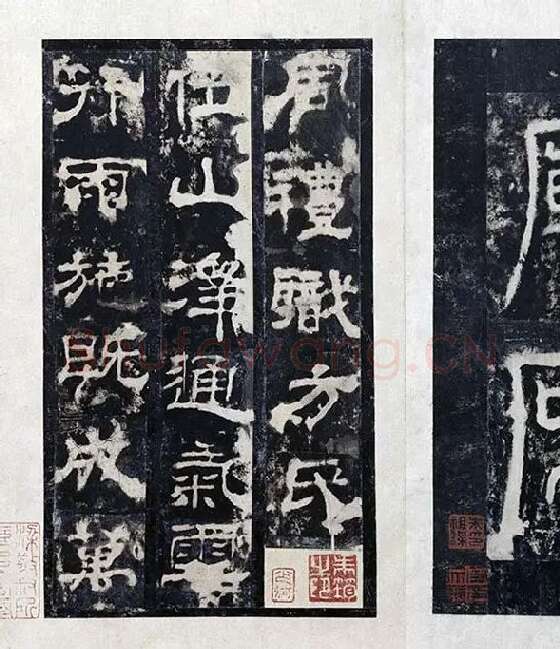 周禮職方氏
位山澤通氣雲
行雨施既成萬
Shufawang.CN